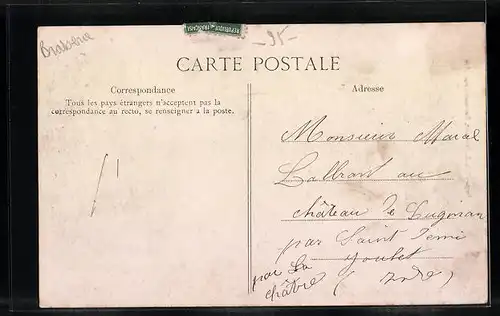 Brasserie
REPUBLIQUE FRANÇAISE
- 95 -
CARTE POSTALE
Correspondance
Tous les pays étrangers n'acceptent pas la
correspondance au recto, se renseigner à la poste.
Adresse
Monsieur
au
château de
par Saint
par La
châtre
(Indre)